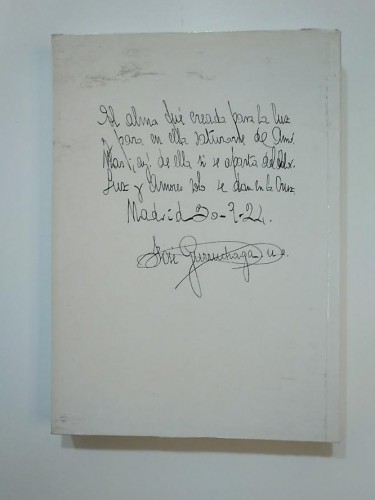 El alma fué creada para la luz
para en ella saturarse de Amor
Mas ¡ay! de ella si se aparta del dolor
Luz y Amores solo se dan en la Cruz
Madrid 30-7-24.
José Gurruchaga